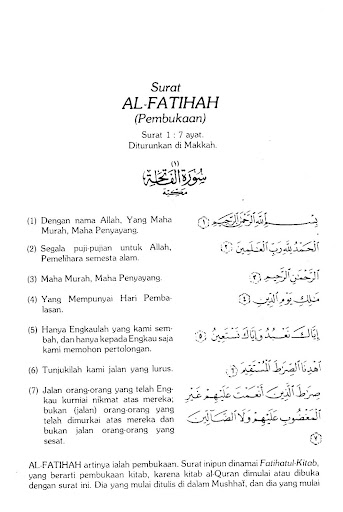 Surat
AL-FATIHAH
(Pembukaan)
Surat 1 : 7 ayat.
Diturunkan di Makkah.
(١)
سُورَةُ الْفَاتِحَةِ
مَكِّيَّة
(1) Dengan nama Allah, Yang Maha
Murah, Maha Penyayang.
بِسْمِ اللَّهِ الرَّحْمَنِ الرَّحِيمِ (١)
(2) Segala puji-pujian untuk Allah,
Pemelihara semesta alam.
الْحَمْدُ لِلَّهِ رَبِّ الْعَالَمِينَ (٢)
(3) Maha Murah, Maha Penyayang.
الرَّحْمَنِ الرَّحِيمِ (٣)
(4) Yang Mempunyai Hari Pemba-
lasan.
مَالِكِ يَوْمِ الدِّينِ (٤)
(5) Hanya Engkaulah yang kami sem-
bah, dan hanya kepada Engkau saja
kami memohon pertolongan.
إِيَّاكَ نَعْبُدُ وَإِيَّاكَ نَسْتَعِينُ (٥)
(6) Tunjukilah kami jalan yang lurus.
اهْدِنَا الصِّرَاطَ الْمُسْتَقِيمَ (٦)
(7) Jalan orang-orang yang telah Eng-
kau kurniai nikmat atas mereka;
bukan (jalan) orang-orang yang
telah dimurkai atas mereka dan
bukan jalan orang-orang yang
sesat.
صِرَاطَ الَّذِينَ أَنْعَمْتَ عَلَيْهِمْ غَيْرِ
الْمَغْضُوبِ عَلَيْهِمْ وَلَا الضَّالِّينَ
(٧)
AL-FATIHAH artinya ialah pembukaan. Surat inipun dinamai Fatihatul-Kitab,
yang berarti pembukaan kitab, karena kitab al-Quran dimulai atau dibuka
dengan surat ini. Dia yang mulai ditulis di dalam Mushhaf, dan dia yang mulai